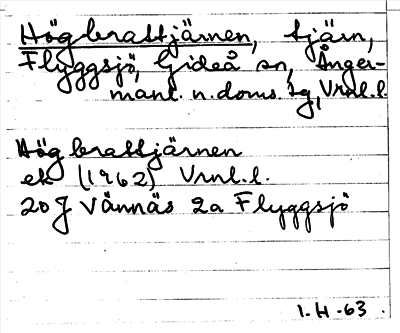 Högbrattjärnen, tjärn,
Flyggsjö, Gideå sn, Ånger-
manl. n. doms. sg, Vnl. l.
Högbrattjärnen
ek (1962) Vnl. l.
20 J Vännäs 2a Flyggsjö
1. H. -63.